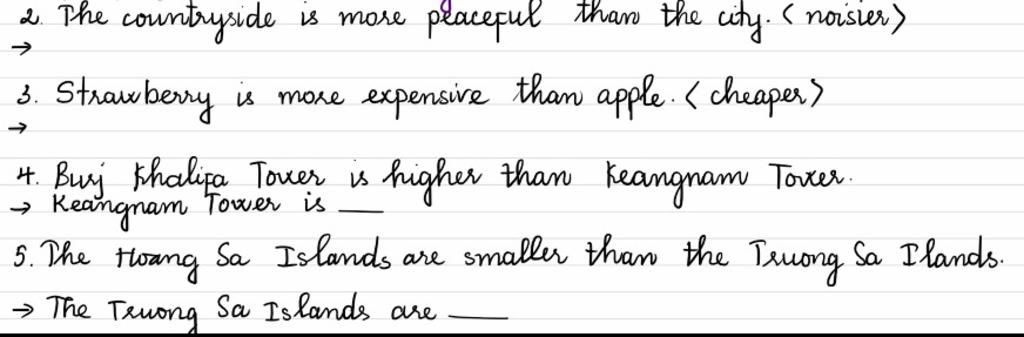 2. The countryside is more peaceful than the city. < noisier >
→
3. Strawberry is more expensive than apple. < cheaper >
→
4. Burj Khalifa Tower is higher than Keangnam Tower.
→ Keangnam Tower is ___
5. The Hoang Sa Islands are smaller than the Truong Sa Ilands.
→ The Truong Sa Islands are ___